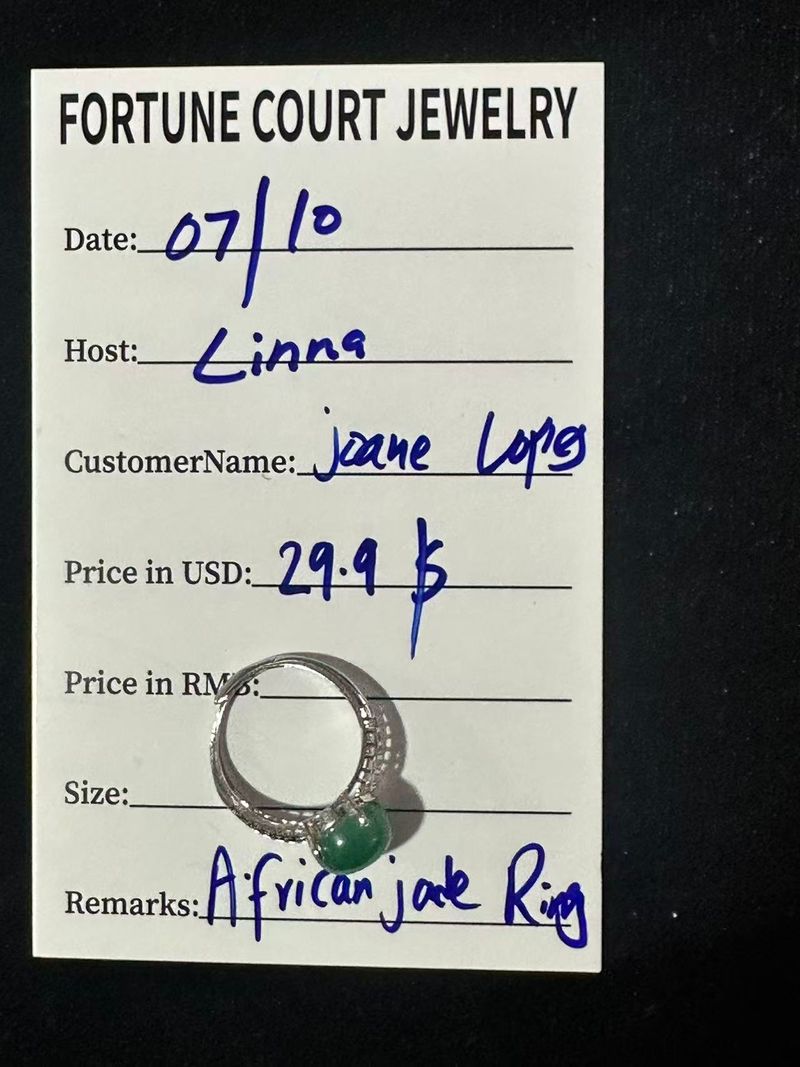 FORTUNE COURT JEWELRY
Date: 07/10
Host: Linna
CustomerName: joane Lopes
Price in USD: 29.9 $
Price in RMB:
Size:
Remarks: African jade Ring